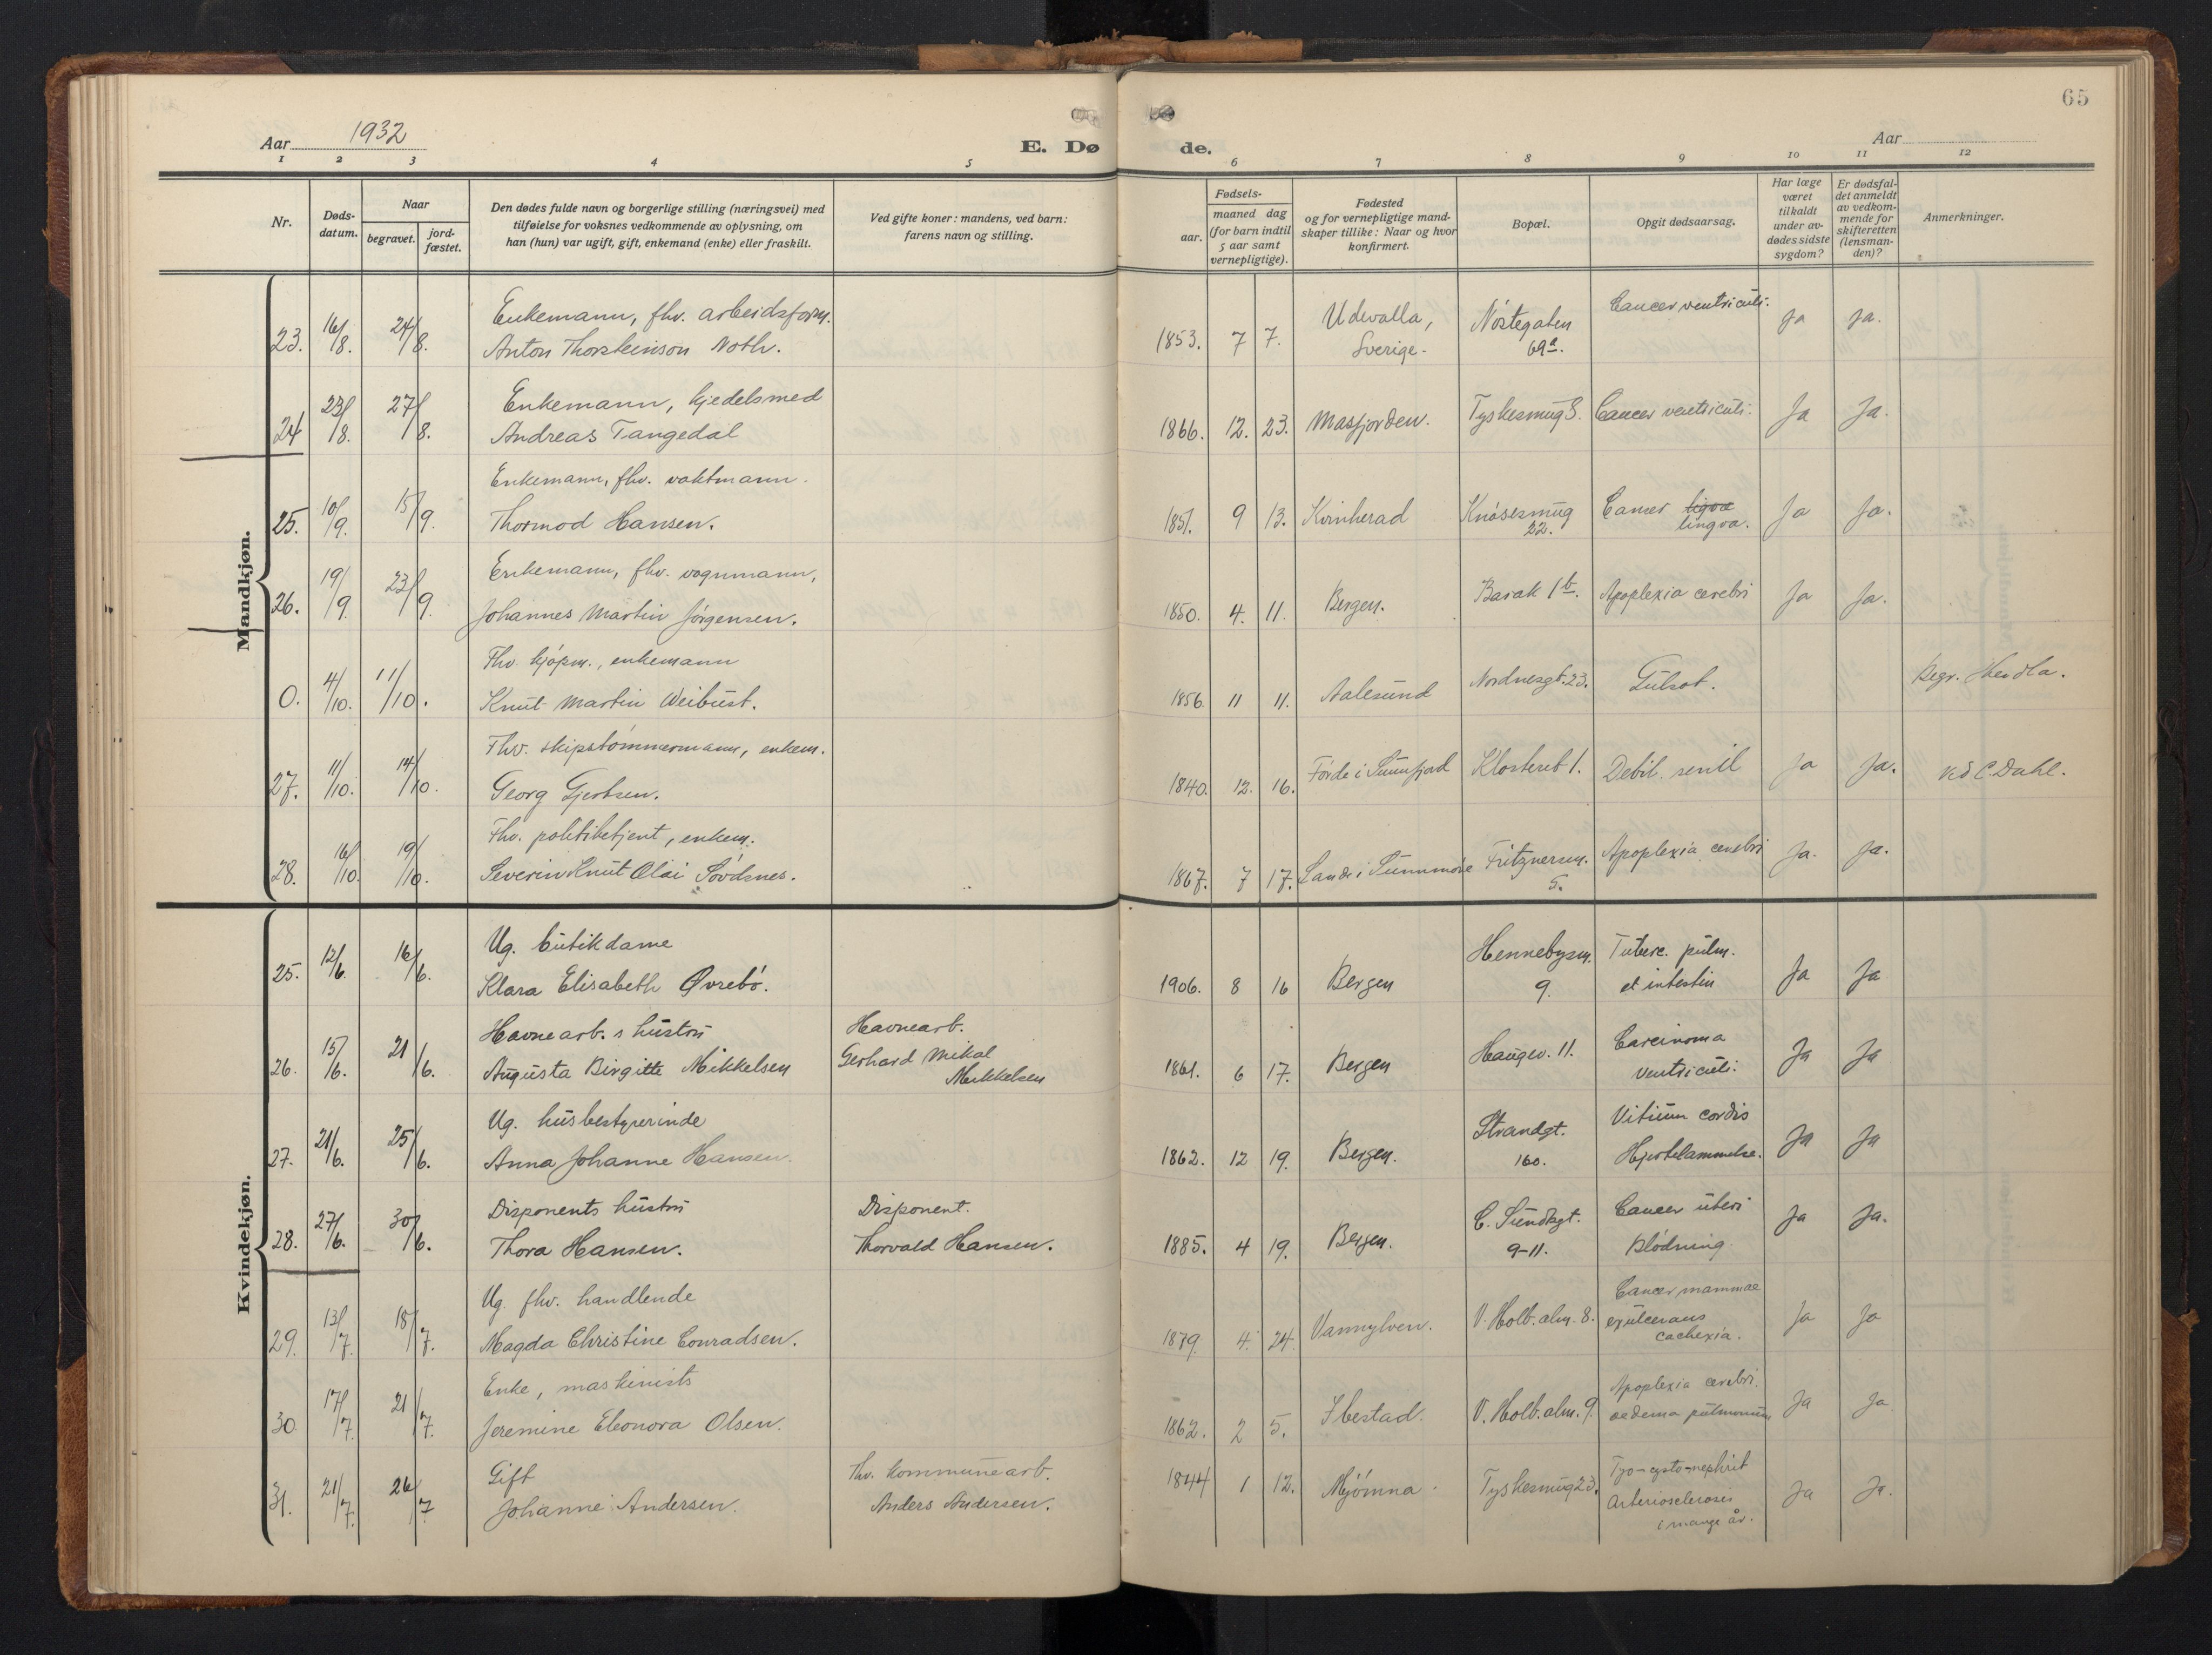 65
Aar 1932
E. Dø de.
Aar
1 2 3 4 5 6 7 8 9 10 11 12
Nr.
Døds-
datum.
Naar
begravet.
jord-
fæstet.
Den dødes fulde navn og borgerlige stilling (næringsvei) med
tilføielse for voksnes vedkommende av oplysning, om
han (hun) var ugift, gift, enkemand (enke) eller fraskilt.
Ved gifte koner: mandens, ved barn:
farens navn og stilling.
Fødsels-
aar.
maaned dag
(for barn indtil
5 aar samt
vernepligtige).
Fødested
og for vernepligtige mand-
skaper tillike: Naar og hvor
konfirmert.
Bopæl.
Opgit dødsaarsag.
Har læge
været
tilkaldt
under av-
dødes sidste
sygdom?
Er dødsfal-
det anmeldt
av vedkom-
mende for
skifteretten
(lensman-
den)?
Anmerkninger.
Mandkjøn.
Enkemann, fhv. arbeidsform.
23. 16/8. 24/8. Anton Thorsteinson Noth. 1853. 7 7. Udevalla, Sverige. Nøstegaten 69a. Cancer ventriculi. Ja Ja.
Enkemann, kjedelsmed
24 23/8. 27/8. Andreas Tangedal 1866. 12. 23. Masfjorden. Tyskesmug 3. Cancer ventriculi. Ja Ja.
Enkemann, fhv. vaktmann.
25. 10/9. 15/9. Thormod Hansen. 1851. 9 13. Kvinherad Knøsesmug 22. Cancer ligva lingva. Ja Ja.
Enkemann, fhv. vognmann,
26. 19/9. 23/9. Johannes Martin Jørgensen. 1850. 4. 11. Bergen. Barak 1b. Apoplexia cerebri Ja Ja.
Fhv. kjøpm., enkemann
0. 4/10. 11/10. Knut Martin Weibust. 1856 11 11. Aalesund Nordnesgt. 23. Gulsot. Begr. Herdla.
Fhv. skipstømmermann, enkem.
27. 11/10. 14/10. Georg Gjertsen. 1840. 12. 16. Førde i Sunnfjord Klosteret 1. Debil. senil Ja Ja. ved C. Dahl.
Fhv. politibetjent, enkem.
28. 16/10. 19/10. Severin Knut Olai Søvdsnes. 1867. 7 17. Sande i Sunnmøre Fritznersm. 5. Apoplexia cerebri Ja. Ja.
Kvindekjøn.
Ug. butikdame
25. 12/6. 16/6. Klara Elisabeth Øvrebø. 1906. 8 16 Bergen Hennebysm. 9. Tuberc. pulm. et intestin Ja Ja
Havnearb.s hustru Havnearb.
26. 15/6. 21/6. Augusta Birgitte Mikkelsen Gerhard Mikal Mikkelsen 1861. 6 17. Bergen Haugev. 11. Carcinoma ventriculi. Ja Ja
Ug. husbestyrerinde
27. 21/6. 25/6. Anna Johanne Hansen. 1862. 12 19. Bergen. Strandgt. 160. Vitium cordis Hjertelammelse. Ja Ja
Disponents hustru Disponent.
28. 27/6. 30/6. Thora Hansen. Thorvald Hansen. 1885. 4 19. Bergen. C. Sundtsgt. 9-11. Cancer uteri Blødning Ja Ja.
Ug. fhv. handlende
29. 13/7. 18/7. Magda Christine Conradsen. 1879. 4. 24. Vannylven. V. Holb. alm. 8. Cancer mammae exulcerans cachexia. Ja Ja
Enke, maskinists
30 17/7. 21/7. Jeremine Eleonora Olsen. 1862. 2 5. Ibestad. V. Holb. alm. 9. Apoplexia cerebri. oedema pulmonum Ja Ja.
Gift Fhv. kommunearb.
31. 21/7. 26/7 Johanne Andersen. Anders Andersen. 1844 1 12. Mjømna. Tyskesmug 23. Pyo-cysto-nephrit Arteriosclerosis i mange år. Ja Ja.